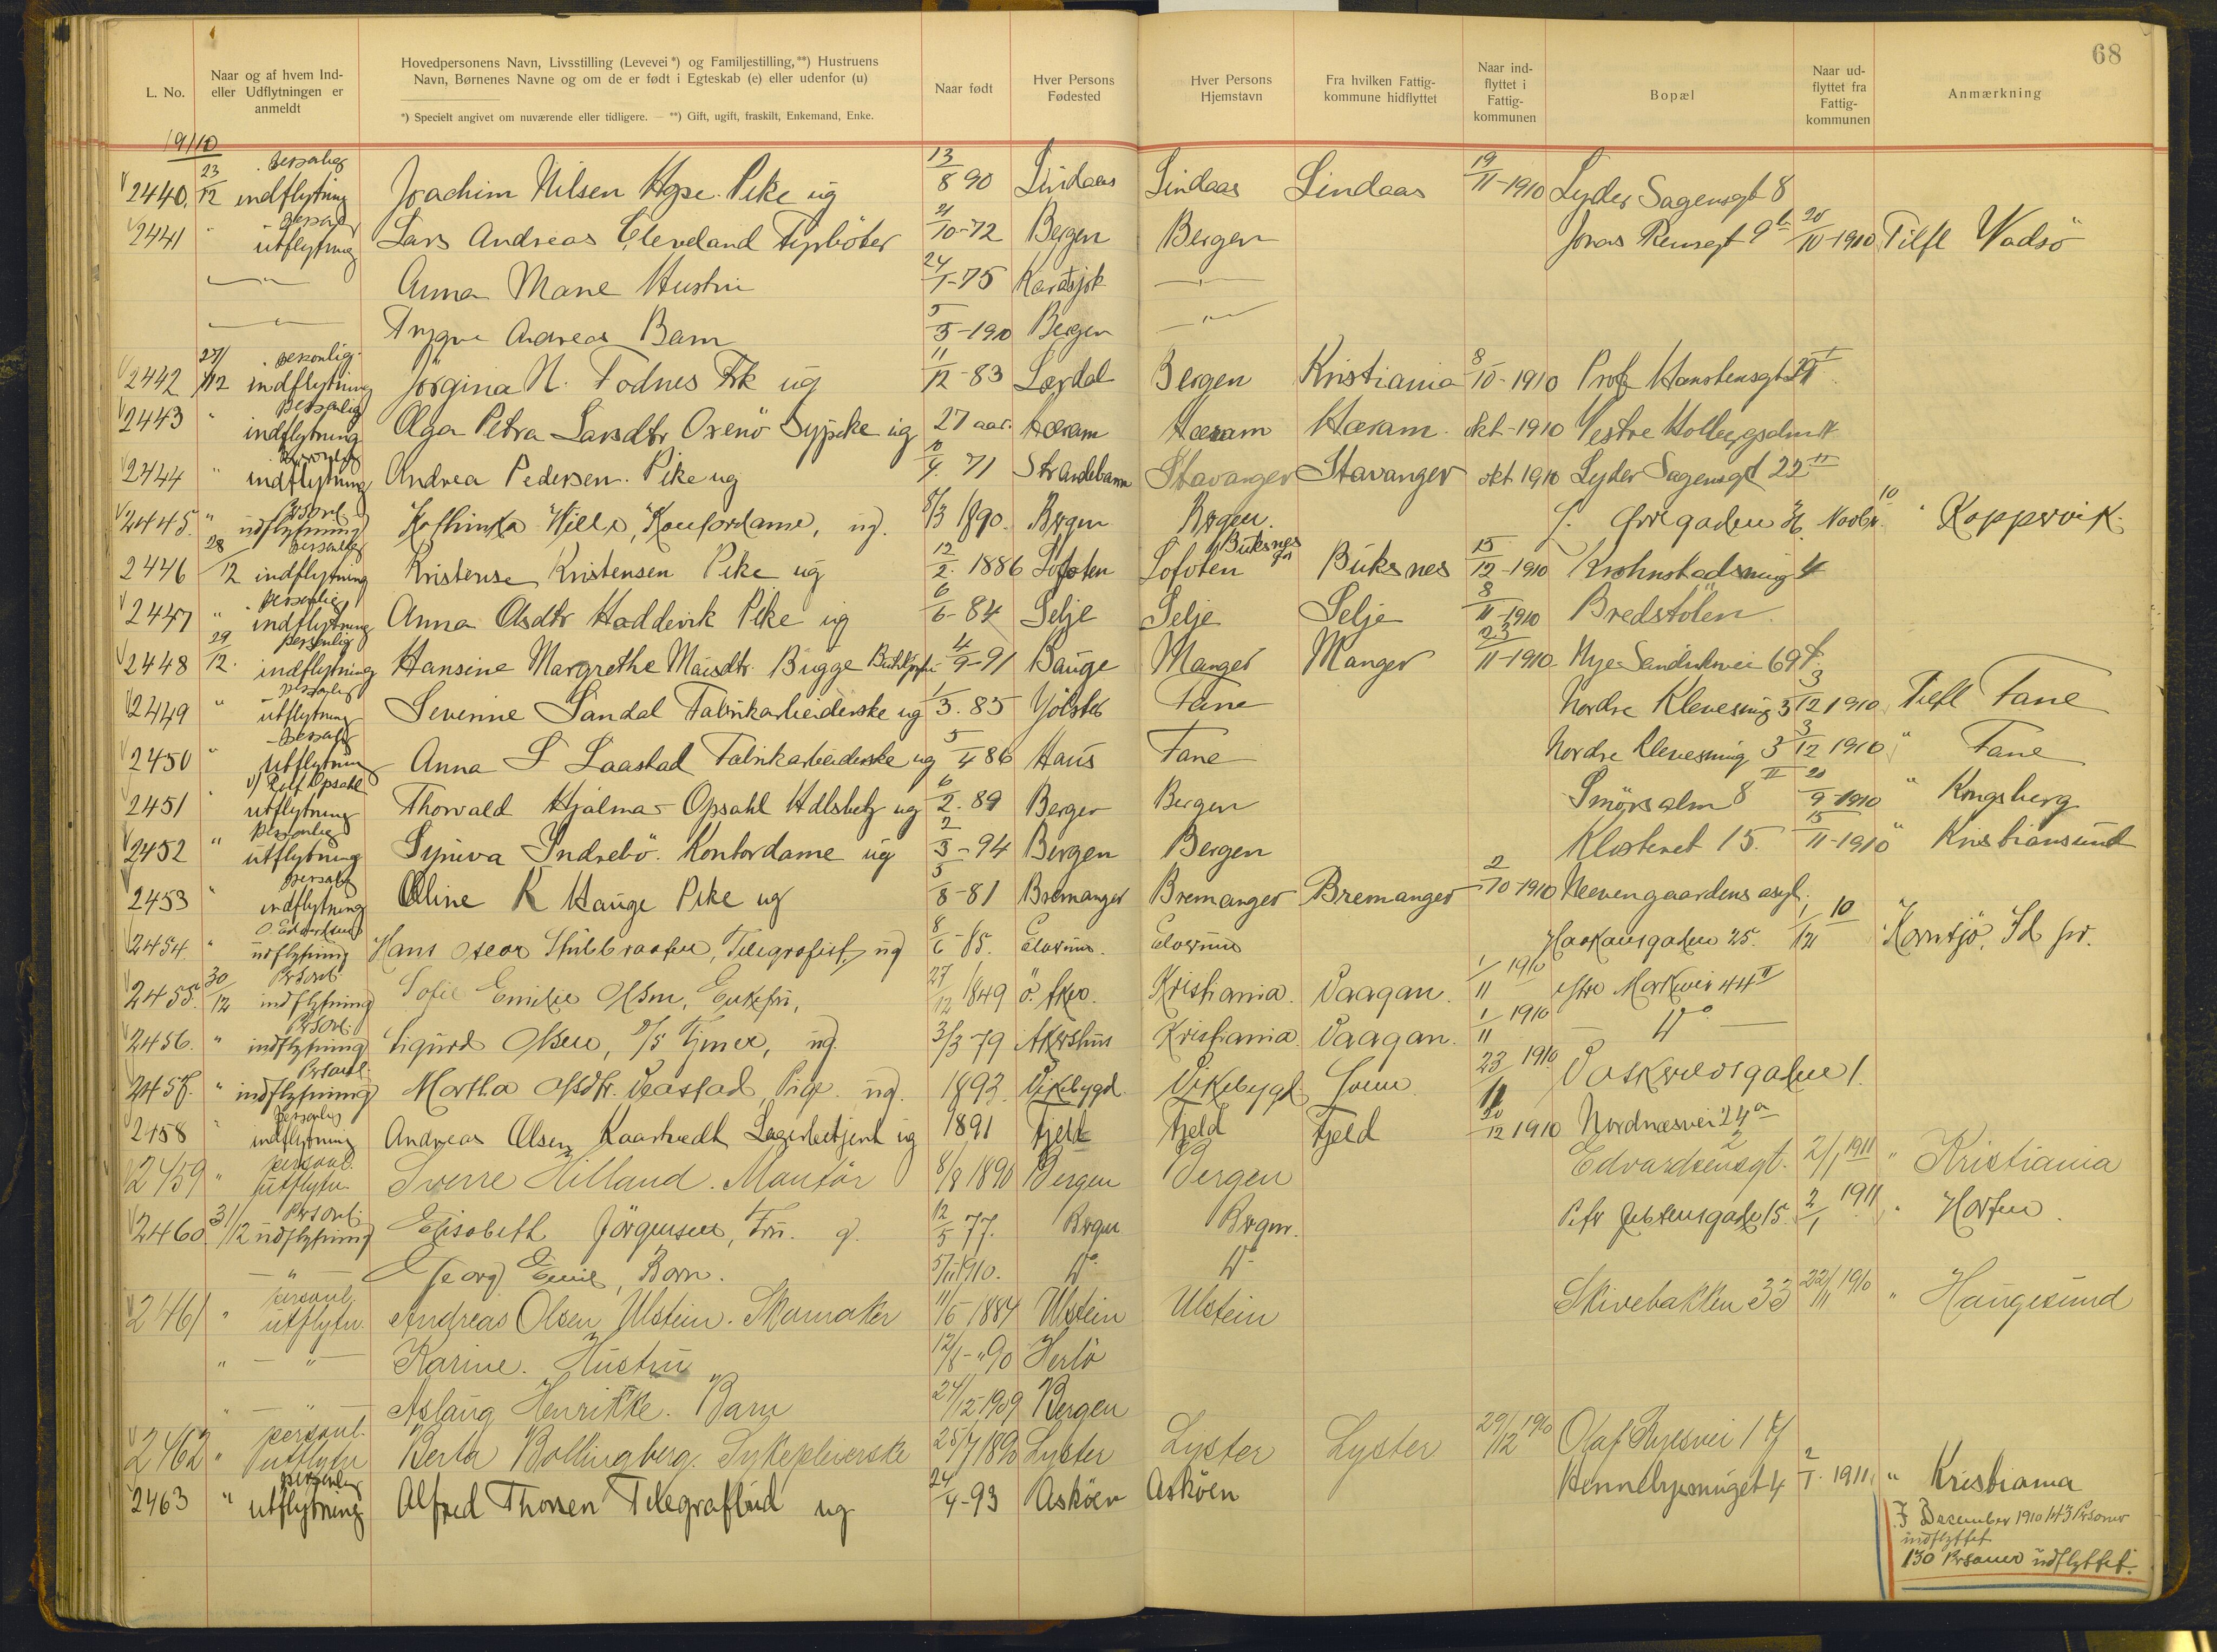 68
L. No.
Naar og af hvem Ind- eller Udflytningen er anmeldt
Hovedpersonens Navn, Livsstilling (Levevei*) og Familjestilling,**) Hustruens Navn, Børnenes Navne og om de er født i Egteskab (e) eller udenfor (u)
*) Specielt angivet om nuværende eller tidligere. — **) Gift, ugift, fraskilt, Enkemand, Enke.
Naar født
Hver Persons Fødested
Hver Persons Hjemstavn
Fra hvilken Fattig- kommune hidflyttet
Naar ind- flyttet i Fattig- kommunen
Bopæl
Naar ud- flyttet fra Fattig- kommunen
Anmærkning
1910
2440. 23/12 personlig indflytning Joachim Nilsen Pike ug 13/8 90 Lindaas Lindaas Lindaas 19/11-1910 Lyder Sagensgt 8
2441 " utflytning Lars Andreas Cleveland Fyrbøter 21/10-72 Bergen Bergen Jonas Reinsgt 9 20/10-1910 Tilfl Vadsö
—"— Anna Marie Hustru 24/1-75 Karasjok —"—
—"— Trygve Andreas Barn 5/5-1910 Bergen —"—
2442 27/12 personlig indflytning Jörgina N. Fodnes Frk ug 11/12-83 Lærdal Bergen Kristiania 8/10-1910 Prof Hanstensgt
2443 " personlig indflytning Olga Petra Larsdtr Oxenö Sypike ug 27 aar. Haram Haram Haram okt-1910 Vestre Holbergsalm
2444 " personlig indflytning Andrea Pedersen. Pike ug 4. 71 Strandebarm Stavanger Stavanger okt 1910 Lyder Sagensgt 22 II
2445. " Personl udflytning Kathinka Wille, Kontordame, ug. 8/3 1890. Bergen Bergen. Novbr. 10 " Koppervik.
2446 28/12 personlig indflytning Kristense Kristensen Pike ug 12/2. 1886 Lofoten Lofoten Buksnes Buksnes 15/12-1910 Krohnstadsmug 4
2447 " personlig indflytning Anna Olsdtr Haddevik Pike ug 6/6-84 Selje Selje Selje 8/11-1910 Bredstölen
2448 29/12. personlig indflytning Hansine Margrethe Maisdtr. Bugge 4/9-91 Bauge Manger Manger 23/11-1910 Nye Sandviksvei 69
2449 " personlig utflytning Severine Sandal Fabrikarbeiderske ug 1/3. 85 Jölster Fane Nordre Klevesmug 3 3/12 1910 Tilfl Fane
2450 " personlig utflytning Anna S Laastad Fabrikarbeiderske ug 5/4 86 Haus Fane Nordre Klevesmug 3 3/12 1910 " Fane
2451 " v/ Rolf Opsahl utflytning Thorvald Hjalmar Opsahl ug 6/2. 89 Bergen Bergen Smörsalm 8 II 20/9-1910 " Kongsberg
2452 " personlig utflytning Syneva Indrebö. Kontordame ug 2/3-94 Bergen Bergen Klosteret 15. 15/11-1910 " Kristiansund
2453 " personlig indflytning Oline K Hauge Pike ug 5/8-81 Bremanger Bremanger Bremanger 2/10-1910 Neevengaardens asyl.
2454. " udflytning Hans Oscar Stubbraaten, Telegrafist, ug 8/6-85. Elverum. Elverum Haakonsgaten 25. 1/12 10 " Kornsjö, Id pr.
2455. 30/12 Personl. indflytning Sofie Emilie Olsen, Enkefru, 27/12 1849 Ö. Aker. Kristiania. Vaagan. 1/11 1910 Markvei 44 II
2456. " Personl. indflytning Sigurd Olsen, ug. 3/3 79 Akershus Kristiania. Vaagan. 1/11 1910 — Do —
2457. " Personl. indflytning Martha Olsdtr. Veastad, Pige ug. 1893. Vikebygd. Vikebygd. 23/11 1910. Vaskerelvsgaten 1.
2458 " personlig indflytning Andreas Olsen Kaartvedt Lagerbetjent ug 1891 Fjeld Fjeld Fjeld 20/12 1910 Nordnæsvei 24 a
2459 " personl. utflytn. Sverre Hilland. Montör 8/8 1890 Bergen Bergen Edvardsensgt. 2 2/1 1911 " Kristiania
2460. 31/12 Personl. udflytning Elisabeth Jörgensen, Fru. g. 12/5 77. Bergen Bergen. Peter Jebsensgate 15. 2/1 1911 " Horten.
—"— Georg Emil, Barn. 5/11 1910. Do Do
2461 " personl. utflytn. Andreas Olsen Ulstein. Skomaker 11/6 1884 Ulstein Ulstein Skivebakken 33 22/11 1910 " Haugesund
" — " Karine. Hustru 12/8-90 Herlö
" — " Aslaug Henrikke. Barn 24/12 1909 Bergen
2462 " personl. Berta Bollingberg. Sykepleierske 25/7 1890 Lyster Lyster Lyster 29/12 1910 Olaf Ryesvei 17
2463 " personlig utflytning Alfred Thorsen Telegrafbud ug 24/4-93 Asköen Asköen Hennebysmuget 4 2/1. 1911 " Kristiania
I Desember 1910 143 Personer
indflyttet
130 Personer udflyttet.